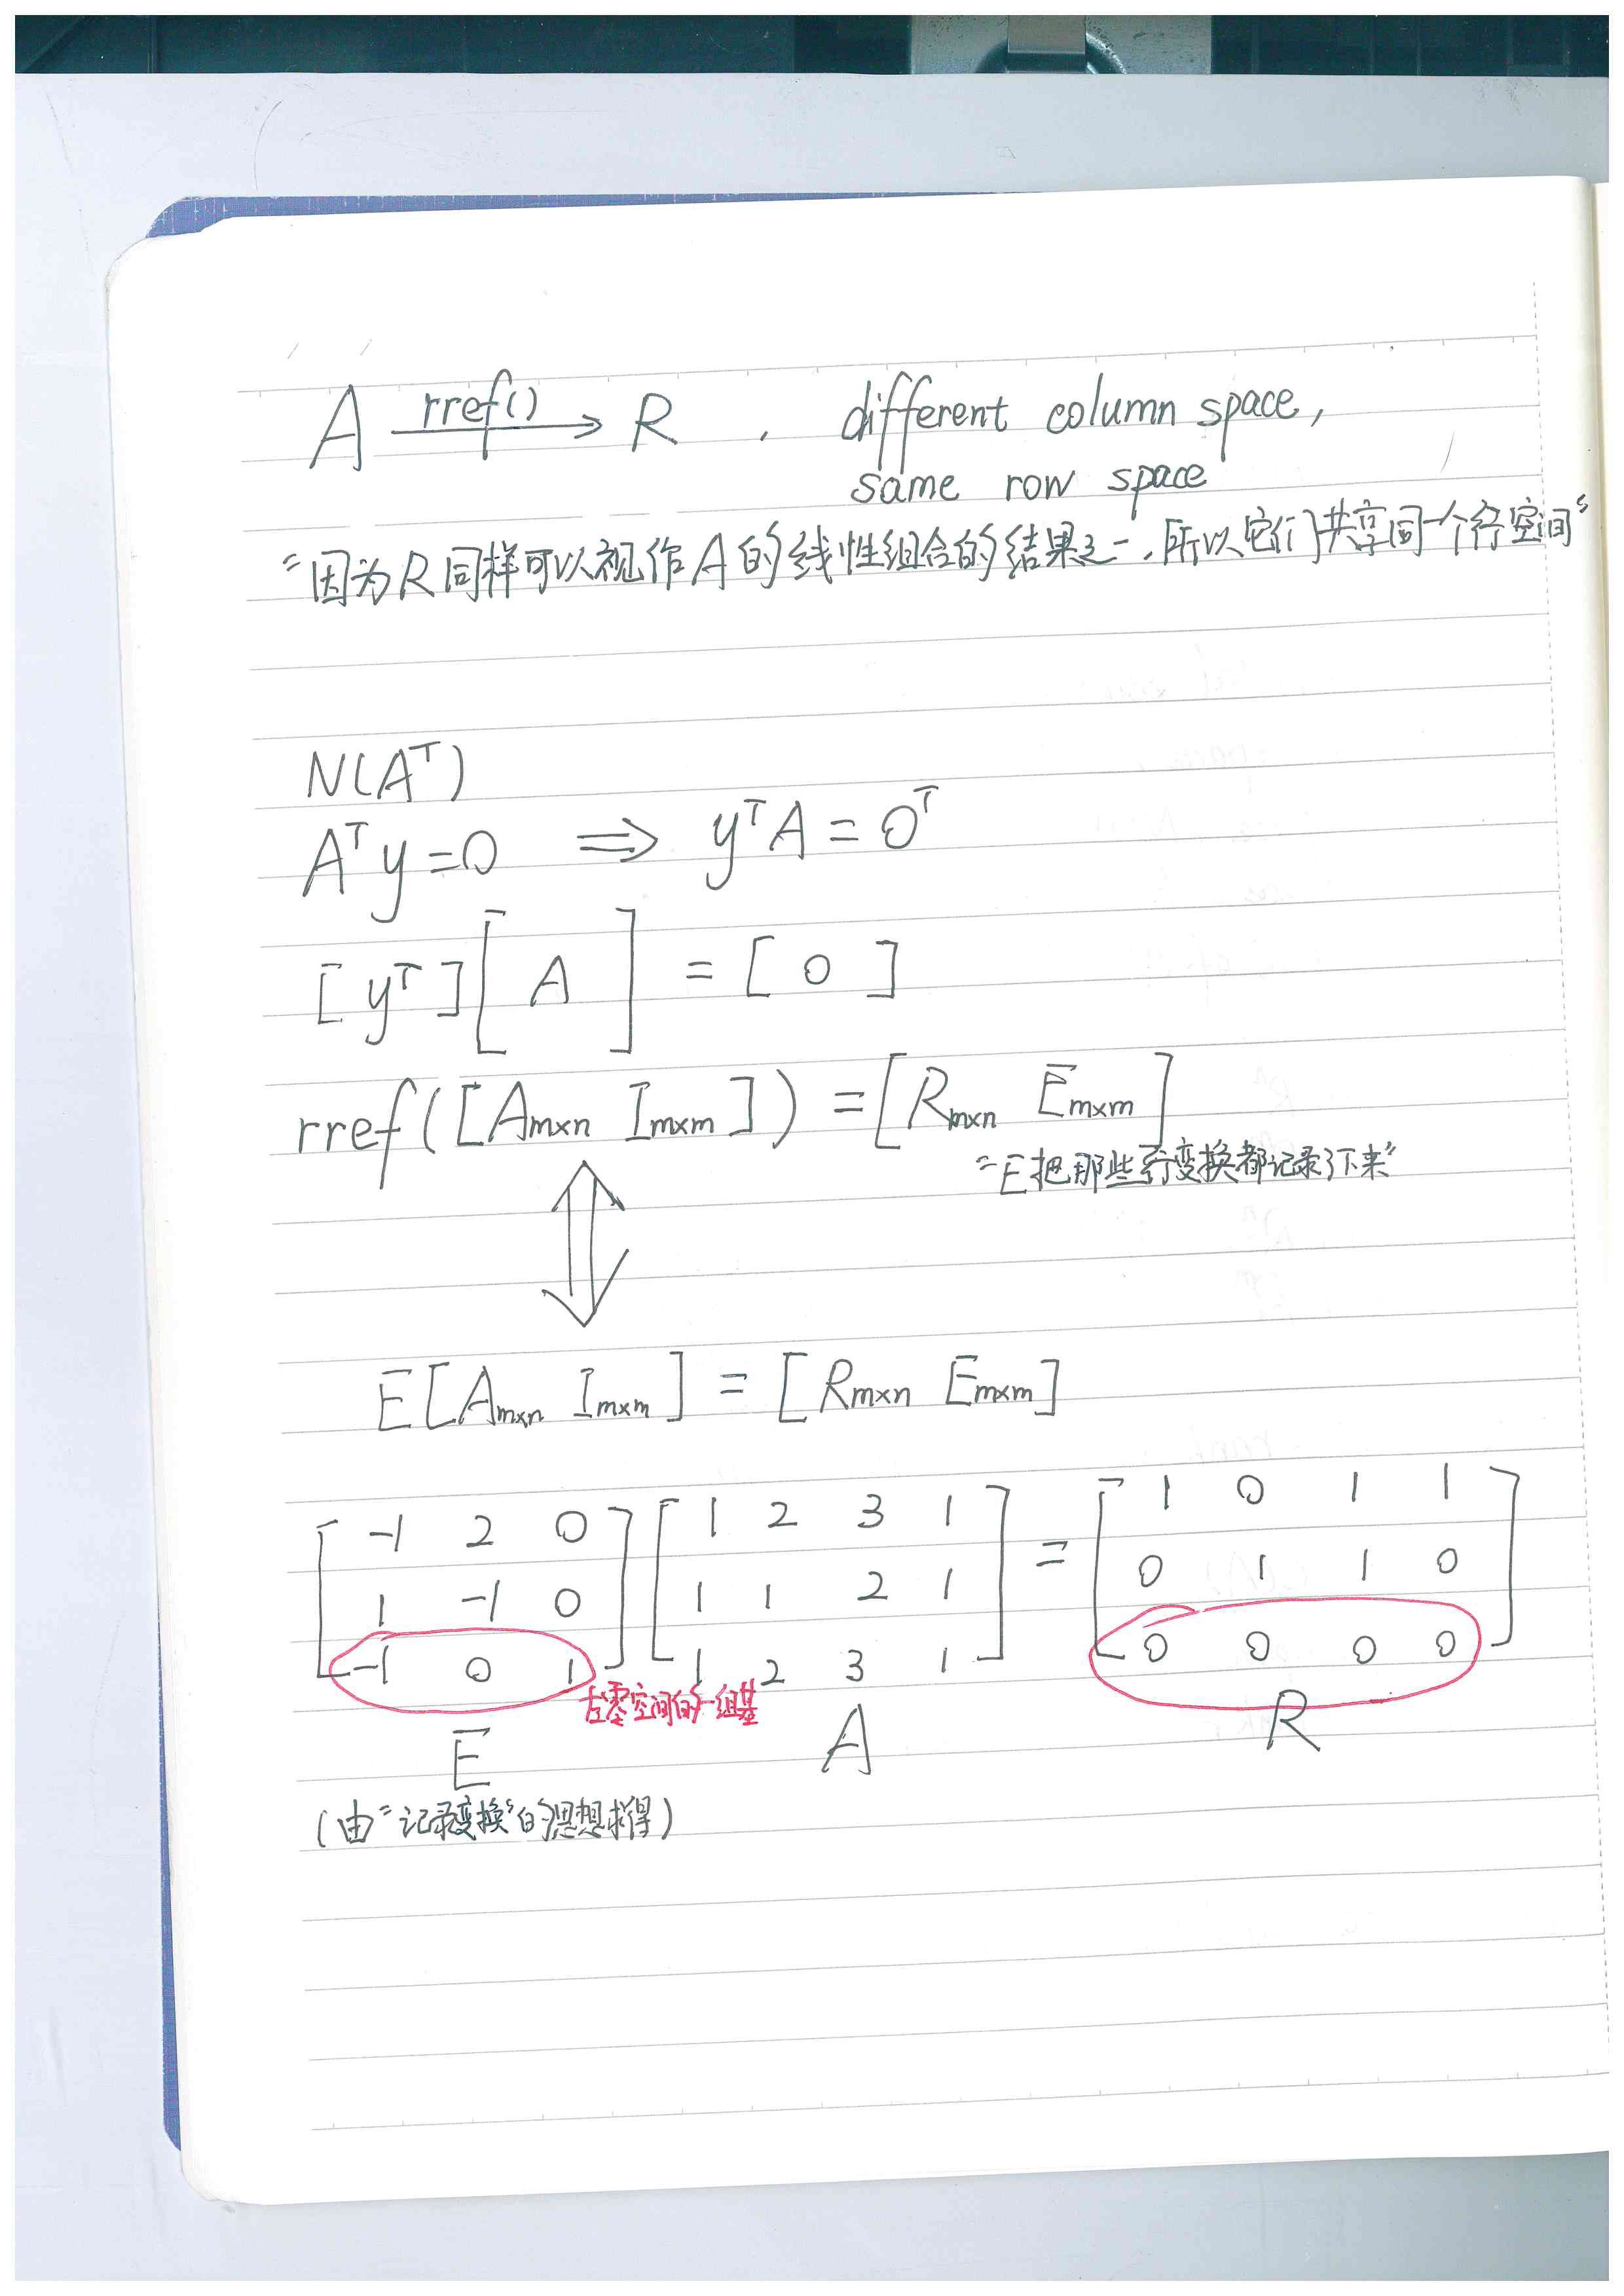 A rref() → R , different column space,
same row space
"因为R同样可以视作A的线性组合的结果之一,所以它们共享同一个行空间"
N(Aᵀ)
Aᵀy=0 ⇒ yᵀA=0ᵀ
[yᵀ][A] = [0]
rref([Aₘₓₙ Iₘₓₘ]) = [Rₘₓₙ Eₘₓₘ]
"E把那些行变换都记录了下来"
⇕
E[Aₘₓₙ Iₘₓₘ] = [Rₘₓₙ Eₘₓₘ]
[-1 2 0] [1 2 3 1] = [1 0 1 1]
[1 -1 0] [1 1 2 1] [0 1 1 0]
[-1 0 1] [1 2 3 1] [0 0 0 0]
左零空间的一组基
E A R
(由"记录变换"的思想求得)